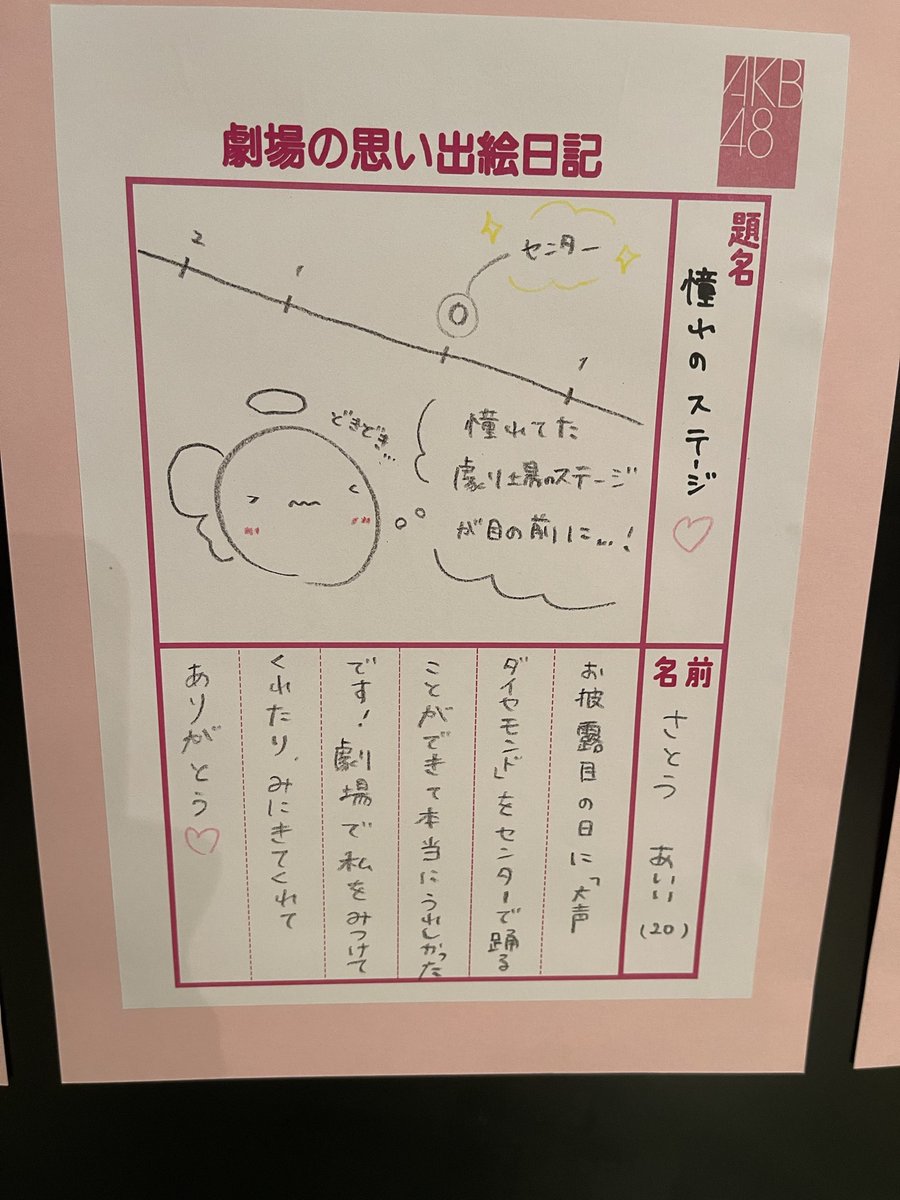 AKB
48
劇場の思い出絵日記
題名
憧れのステージ♡
2
1
0
センター
1
どきどき…
憧れてた
劇場のステージ
が目の前に…!
名前
さとう あいり
(20)
お披露目の日に「大声
ダイヤモンド」をセンターで踊る
ことができて本当にうれしかった
です!劇場で私をみつけて
くれたり、みにきてくれて
ありがとう♡